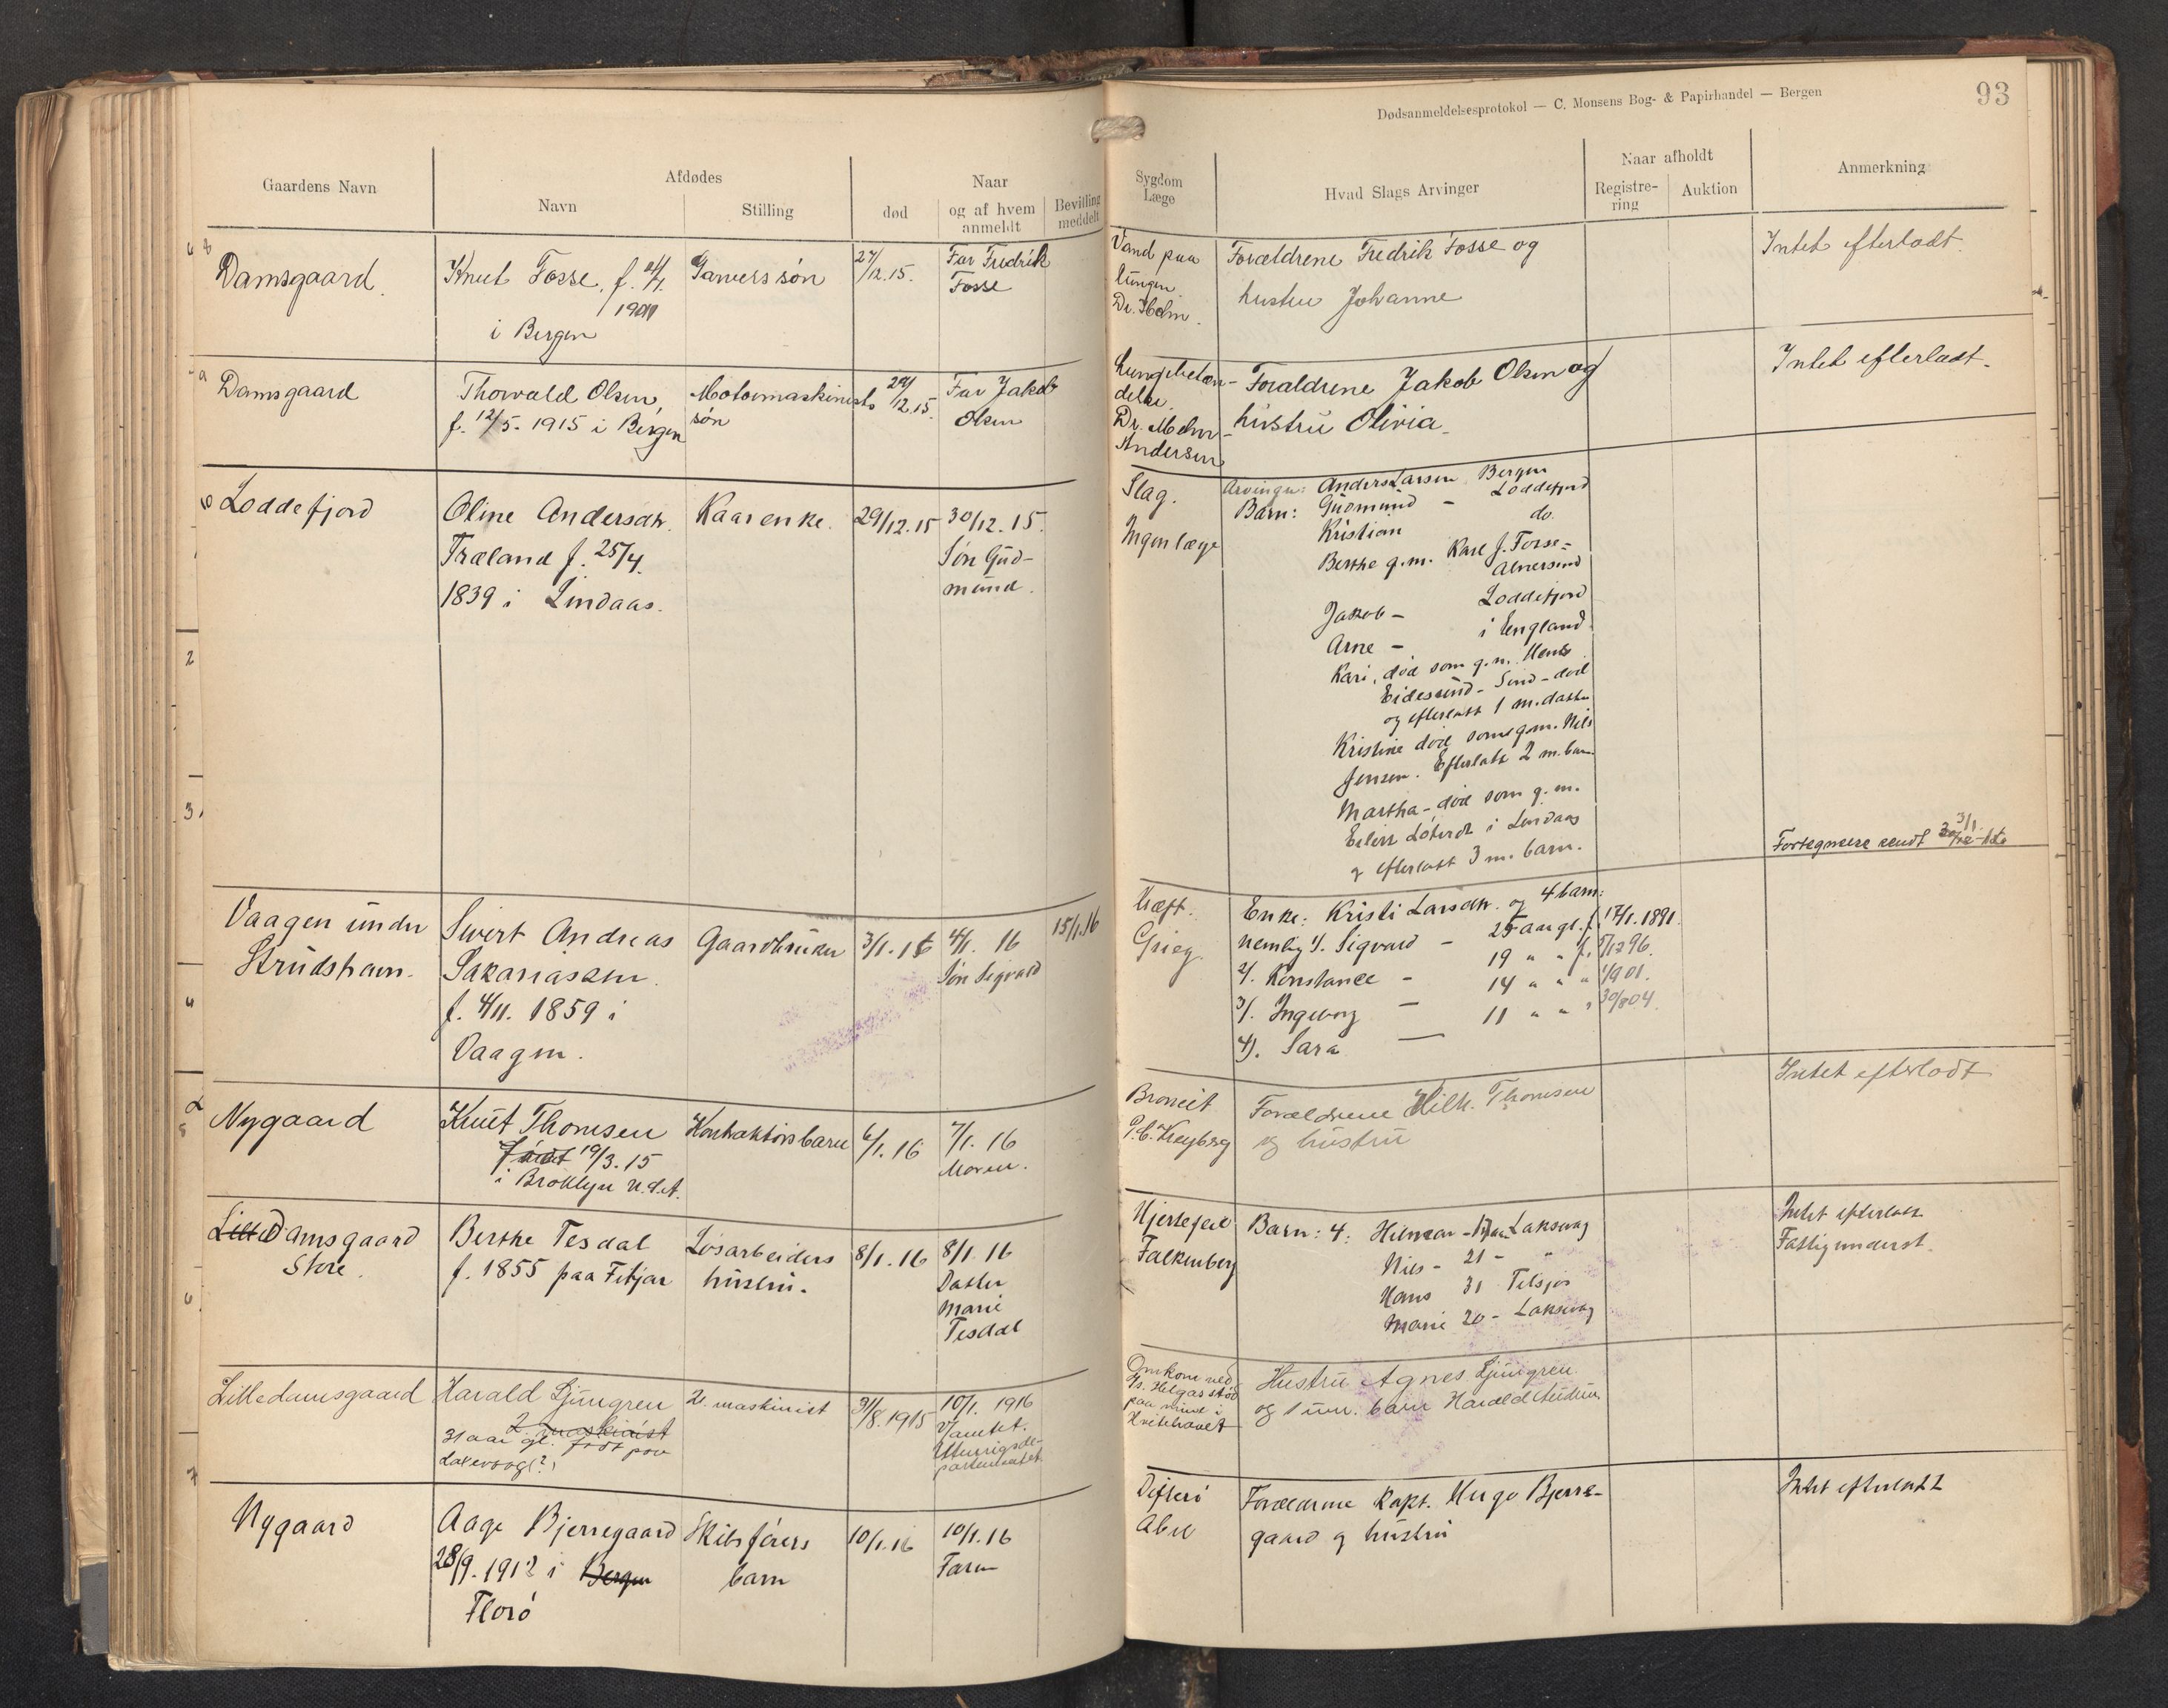 Dødsanmeldelsesprotokol — C. Monsens Bog- & Papirhandel — Bergen
93
Gaardens Navn
Afdødes
Navn
Stilling
død
Naar
og af hvem
anmeldt
Bevilling
meddelt
Sygdom
Læge
Hvad Slags Arvinger
Naar afholdt
Registre-
ring
Auktion
Anmerkning
Damsgaard.
Knut Fosse, f.
i Bergen
Garvers søn
27/12.15.
Far Fredrik
Fosse
Vand paa
lungen
Dr. Holm.
Forældrene Fredrik Fosse og
hustru Johanne
Intet efterladt.
Damsgaard
Thorvald Olsen,
f. 12/5. 1915 i Bergen
Motormaskinists
søn
12.15.
Far Jakob
Olsen
Lungebetæn-
delse.
Dr. Mohn-
Andersen
Forældrene Jakob Olsen og
hustru Olivia.
Intet efterladt.
Loddefjord
Oline Andersdtr.
Træland f. 25/4.
1839 i Lindaas.
Kaarenke.
29/12.15
30/12.15.
Søn Gud-
mund.
Slag.
Ingen læge
Arvinger: Anders Larsen Bergen
Barn: Gudmund - Loddefjord
Kristian do.
Berthe g.m. Karl J. Fosse=
Alversund
Jakob - Loddefjord
Arne - i England.
Kari, død som g.m.
Eidesund - Sund - død
og efterlatt 1 m. datter
Kristine død som g.m. Nils
Jensen. Efterlatt 2 m. barn
Martha - død som g.m.
i Lindaas
og efterlatt 3 m. barn.
3/1
sendt
Vaagen under
Strudshavn.
Sivert Andreas
Sakariassen.
f. 4/11. 1859 i
Vaagen.
Gaardbruker
3/1.16
4/1. 16
Søn Sigvard
15/1.16
Kræft.
Grieg.
Enke: Kristi Larsdtr. og 4 barn:
nemlig 1/. Sigvard - 25 aar gl. f. 17/1.1891.
2/. Konstance - 19 " " f. 5/12 96.
3/. Ingeborg - 14 " " " 1/9 01.
4/. Sara - 11 " " " 30/8 04.
Nygaard
Knut Thomsen
født 19/3.15
i Broklyn U.S.A.
Kontraktørs barn
6/1.16
7/1. 16
Moren.
Bronкit
Forældrene Wilh. Thomsen
og hustru
Intet efterladt
Lille Damsgaard
Store.
Berthe Tesdal
f. 1855 paa Fitjar
Løsarbeiders
hustru.
8/1.16
8/1.16
Datter
Marie
Tesdal
Hjertefeil
Falkenberg
Barn: 4: Hilmar - Laksevag
Nils - 21 - "
Hans 31
Marie 20 - Laksevag
Intet efterlatt
Fattigunderst.
Lilledamsgaard
Harald Ljungren
2. maskinist
31 aar gl. født paa
Laksevaag(?)
2. maskinist
31/8.1915
10/1. 1916
Utenrigsde-
partementet
Omkom ved
Ds. Helgas stød
paa mine i
Hvitehavet
Hustru Agnes Ljungren
og 1 um. barn Harald
Nygaard
Aage Bjerregaard
28/9.1912 i Bergen
Florø
Skibsførers
barn
10/1.16
10/1.16
Faren
Difteri
Abel
Forældrene Kapt. Hugo Bjerre-
gaard og hustru
Intet efterlatt